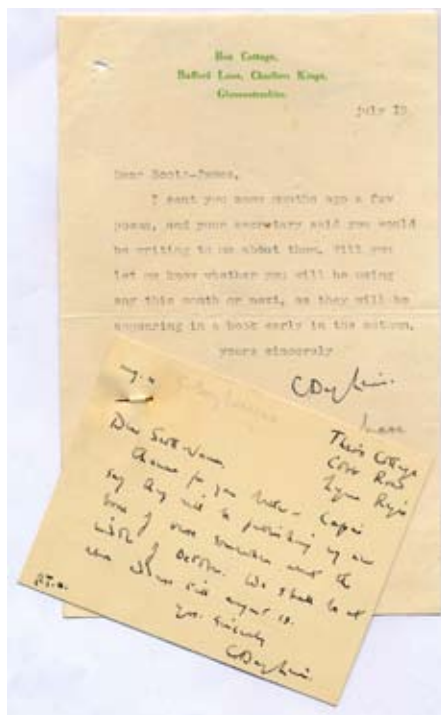 Box Cottage,
Bafford Lane, Charlton Kings,
Gloucestershire.
july 19
Dear Scott-James,
I sent you some months ago a few
poems, and your secretary said you would
be writing to me about them. Will you
let me know whether you will be using
any this month or next, as they will be
appearing in a book early in the autumn.
yours sincerely
C Day Lewis.
aug. 
Cottage
Cobb Road
Lyme Regis
Dear Scott-James,
for your letter – Cape
say they will be publishing my new
book of verse somewhere about the
middle of October. We shall be at
above till august 19.
Yrs. sincerely
C Day Lewis.
P.T.O.